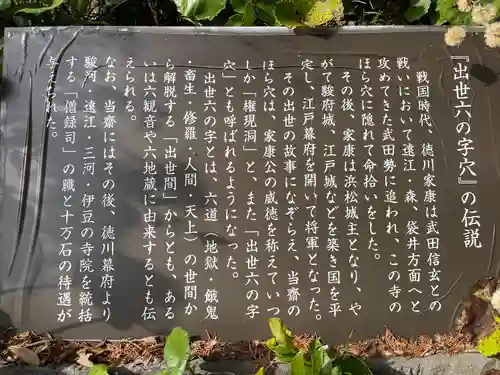 『出世六の字穴』の伝説
戦国時代、徳川家康は武田信玄との
戦いにおいて遠江・森、袋井方面へと
攻めてきた武田勢に追われ、この寺の
ほら穴に隠れて命拾いをした。
その後、家康は浜松城主となり、や
がて駿府城、江戸城などを築き国を平
定し、江戸幕府を開いて将軍となった。
その出世の故事になぞらえ、当齋の
ほら穴は、家康公の威徳を称えていつ
しか「権現洞」と、また「出世六の字
穴」とも呼ばれるようになった。
出世六の字とは、六道（地獄・餓鬼
・畜生・修羅・人間・天上）の世間か
ら解脱する「出世間」からとも、ある
いは六観音や六地蔵に由来するとも伝
えられる。
なお、当齋にはその後、徳川幕府より
駿河・遠江・三河・伊豆の寺院を統括
する「僧録司」の職と十万石の待遇が
与えられた。